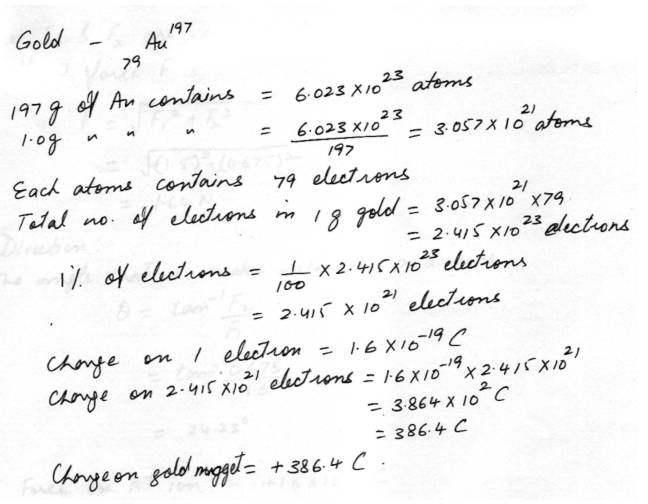 Gold - ₇₉Au¹⁹⁷
197 g of Au contains = 6.023 X10²³ atoms
1.0g " " " = 6.023 X10²³ / 197 = 3.057 X 10²¹ atoms
Each atoms contains 79 electrons
Total no. of electrons in 1 g gold = 3.057 X 10²¹ X79
= 2.415 X10²³ electrons
1% of electrons = 1/100 X 2.415 X10²³ electrons
= 2.415 X 10²¹ electrons
Charge on 1 electron = 1.6 X10⁻¹⁹ C
Charge on 2.415 X10²¹ electrons = 1.6 X10⁻¹⁹ X 2.415 X10²¹
= 3.864 X 10² C
= 386.4 C
Charge on gold nugget = +386.4 C .